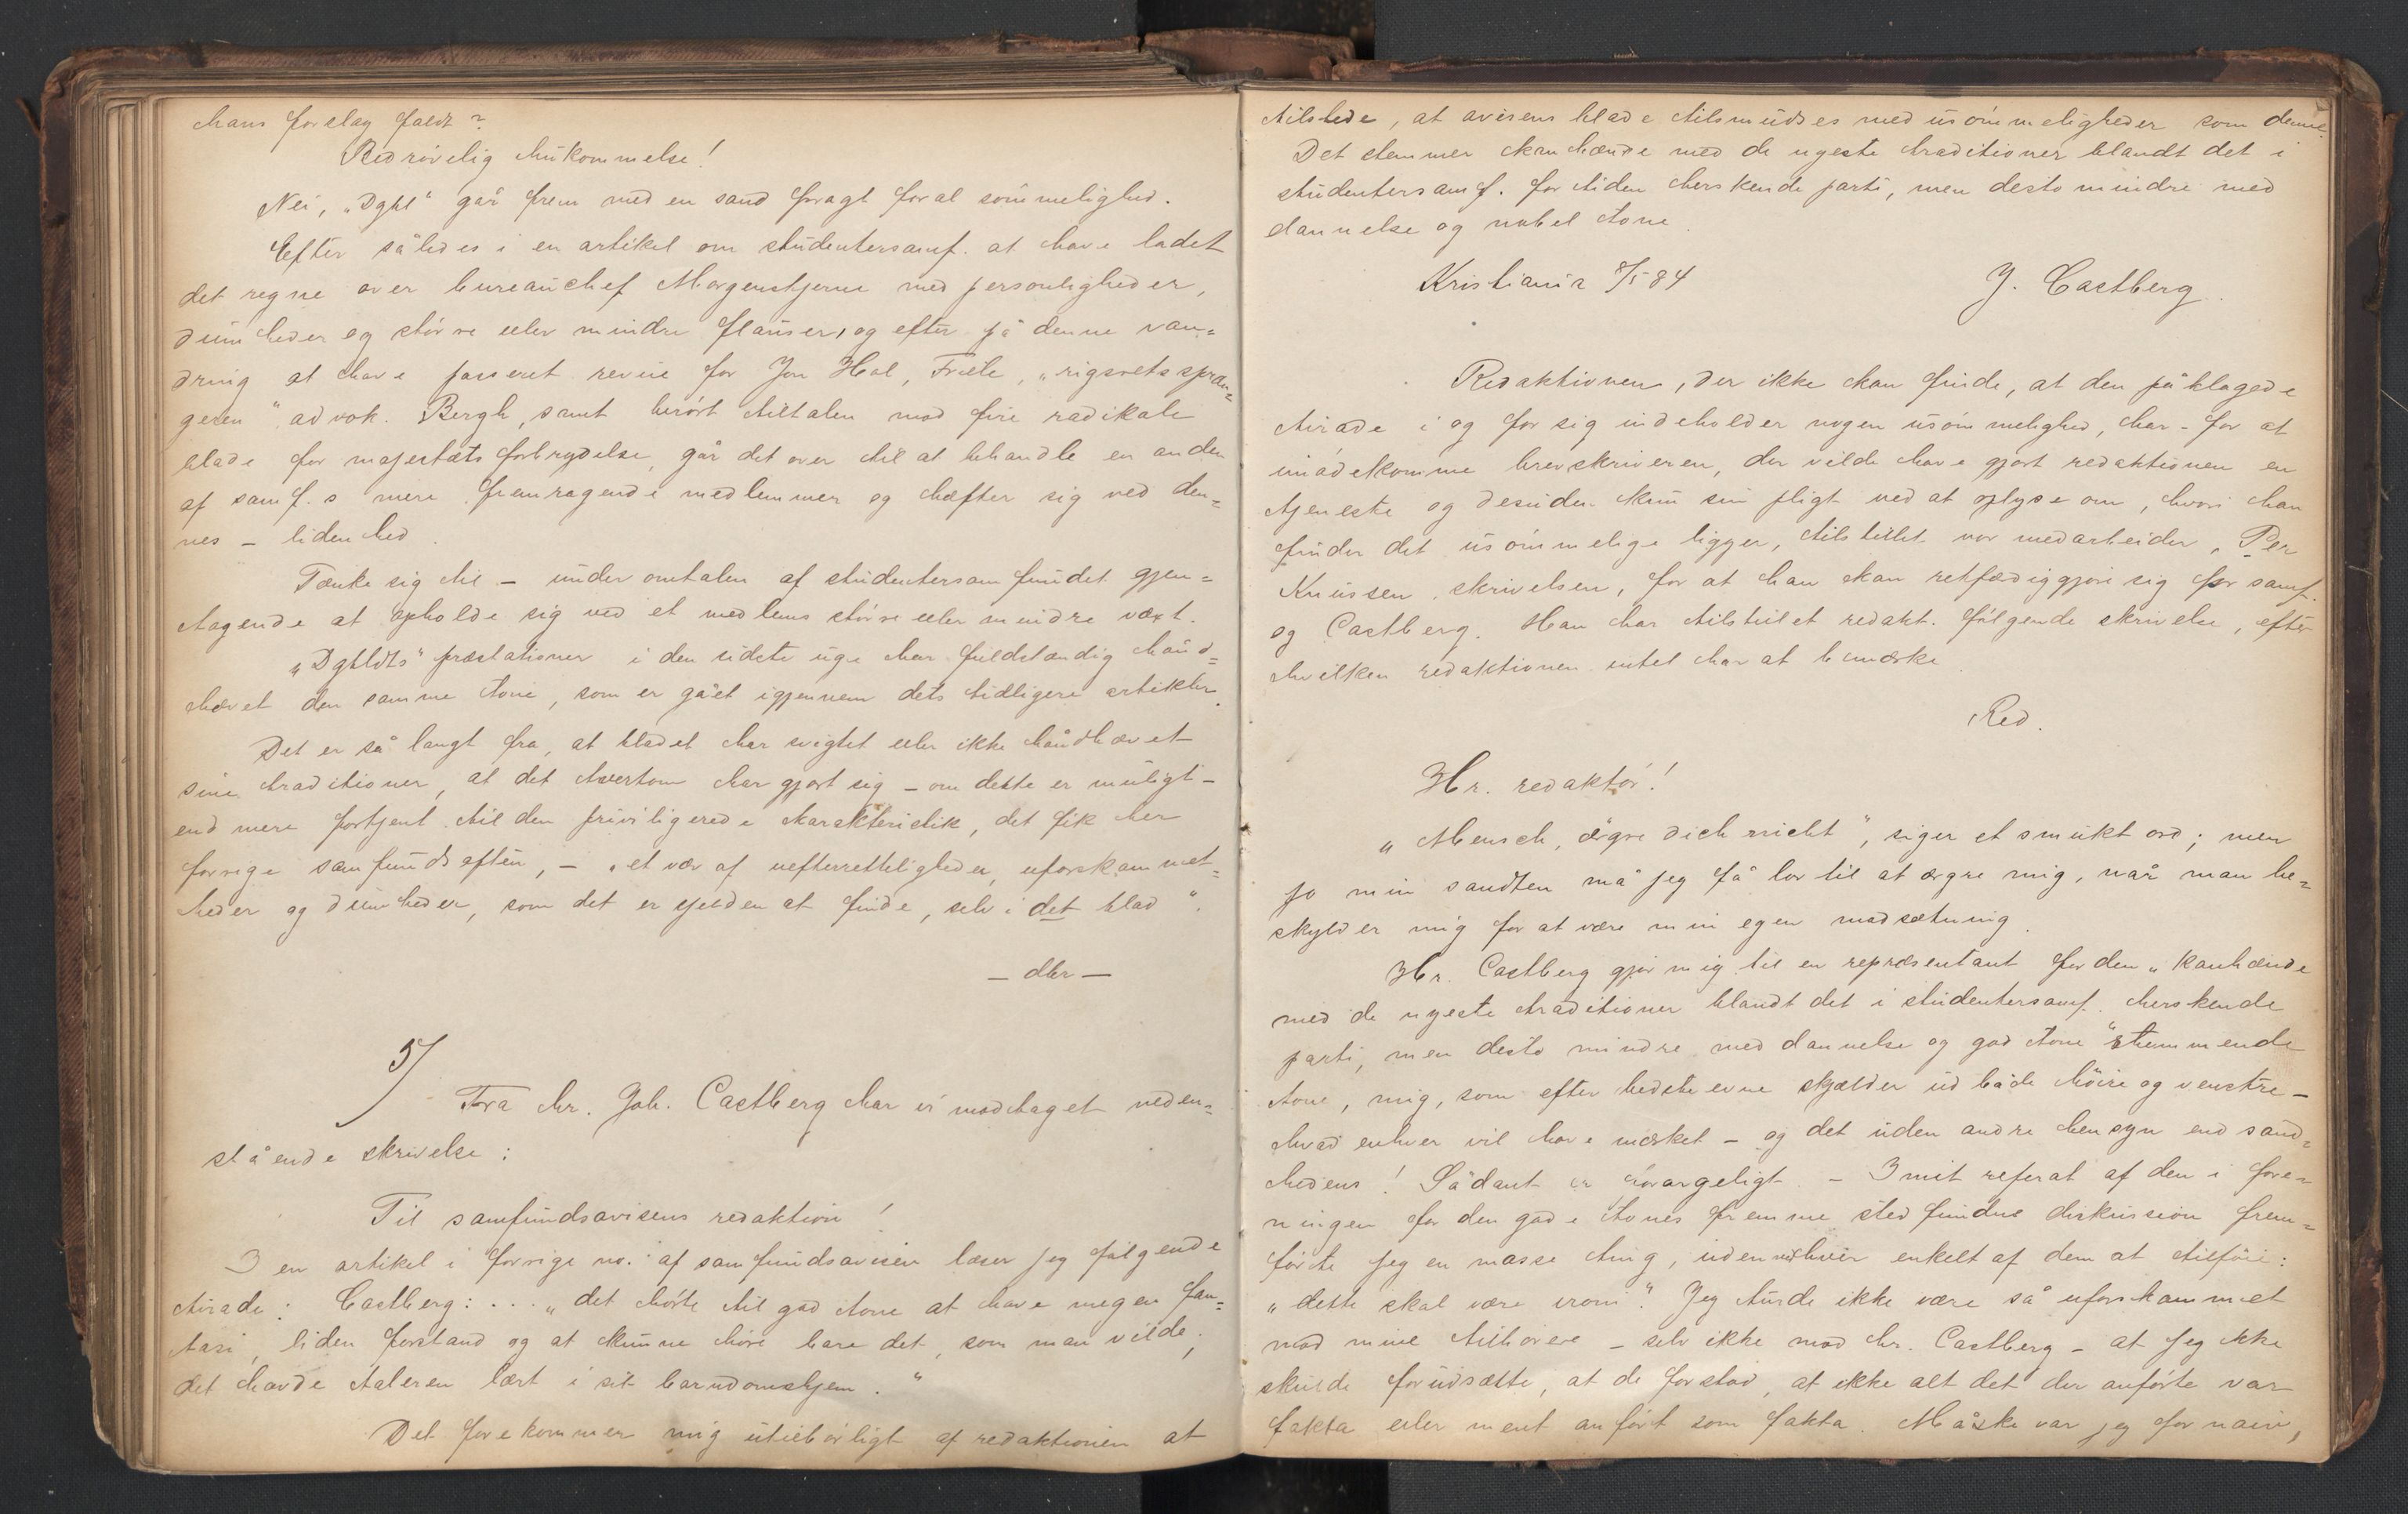 hans forslag faldt?
Bedrövelig hukommelse!
Nei, "Dgbl" går frem med en sand foragt for al sömmelighed.
Efter således i en artikel om studentersamf. at have ladet
det regne over bureauchef Morgenstjerne med personligheder,
dumheder og större eller mindre flauser, og efter på denne van=
dring at have passeret revue for Jon Hol, Friele, "rigsretsspræn=
geren" advok. Bergh, samt berört tiltalen mod fire radikale
blade for majestætsforbrydelse, går det over til at behandle en anden
af samf.s mere fremragende medlemmer og hæfter sig ved den=
nes – lidenhed.
Tænke sig til – under omtalen af studentersamfundet gjen=
tagende at opholde sig ved et medlems större eller mindre væxt.
"Dgbldts" præstationer i den sidste uge har fuldstændig hånd=
hævet den samme tone, som er gået igjennem dets tidligere artikler.
Det er så langt fra, at bladet har svigtet eller ikke håndhævet
sine traditioner, at det tvertom har gjort sig – om dette er muligt –
end mere fortjent til den priviligerede karakteristik, det fik her
forrige samfundsaften, – "et væv af uefterretteligheder, uforskammet=
heder og dumheder, som det er sjelden at finde, selv i det blad".
– dbr –
5/
Fra hr. Joh. Castberg har vi modtaget neden=
stående skrivelse:
Til samfundsavisens redaktion!
I en artikel i forrige no. af samfundsavisen læser jeg fölgende
tirade: Castberg: ... "det hörte til god tone at have megen fan=
tasi, liden forstand og at kunne höre bare det, som man vilde;
det havde taleren lært i sit barndomshjem."
Det forekommer mig utilbörligt af redaktionen at
tilstede, at avisens blade tilsmudses med usömmeligheder som denne.
Det stemmer kanhænde med de nyeste traditioner blandt det i
studentersamf. for tiden herskende parti, men desto mindre med
dannelse og nobel tone.
Kristiania 8/5 84
J. Castberg.
Redaktionen, der ikke kan finde, at den påklagede
tirade i og for sig indeholder nogen usömmelighed, har – for at
imödekomme brevskriveren, der vilde have gjort redaktionen en
tjeneste og desuden kun sin pligt ved at oplyse om, hvori han
finder det usömmelige ligger, tilstillet vor medarbeider, Per
Knussen, skrivelsen, for at han kan retfædiggjöre sig for samf.
og Castberg. Han har tilstillet redakt. fölgende skrivelse, efter
hvilken redaktionen intet har at bemærke.
Red.
Hr. redaktör!
"Mensch, ärgre dich nicht", siger et smukt ord; men
jo min sandten må jeg få lov til at ærgre mig, når man be=
skylder mig for at være min egen modsætning.
Hr. Castberg gjör mig til en repræsentant for den "kanhænde
med de nyeste traditioner blandt det i studentersamf. herskende
parti, men desto mindre med dannelse og god tone" stemmende
tone, mig, som efter bedste evne skjælder ud både höire og venstre –
hvad enhver vil have mærket – og det uden andre hensyn end sand=
hedens! Sådant er forargeligt. – I mit referat af den i fore=
ningen for den gode tones fremme stedfundne diskussion frem=
förte jeg en masse ting, uden ved hver enkelt af dem at tilföie:
"dette skal være ironi". Jeg turde ikke være så uforskammet
mod mine tilhörere – selv ikke mod hr. Castberg – at jeg ikke
skulde forudsætte, at de forstod, at ikke alt det der anförte var
fakta eller ment anfört som fakta. Måske var jeg for naiv,